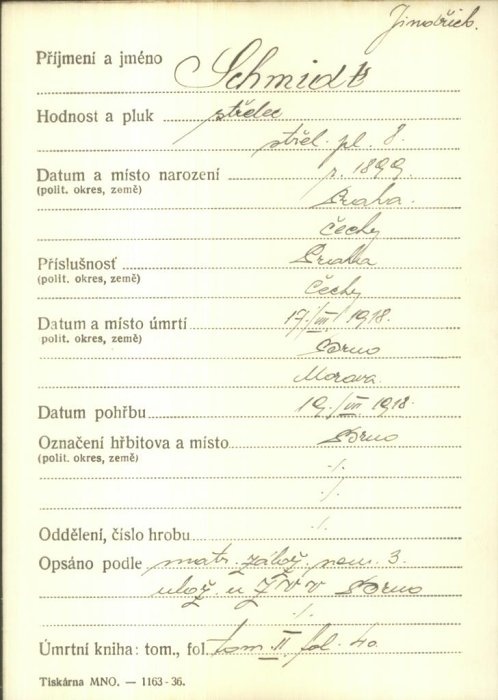 Jindřich.
Příjmení a jméno Schmidt
Hodnost a pluk střelec
střel. pl. 8.
Datum a místo narození r. 1899.
(polit. okres, země) Praha.
Čechy
Příslušnosť Praha
(polit. okres, země) Čechy
Datum a místo úmrtí 17./VII. 1918.
polit. okres, země) Brno
Morava.
Datum pohřbu 19./VII. 1918.
Označení hřbitova a místo Brno
(polit. okres, země) ./.
./.
Oddělení, číslo hrobu ./.
Opsáno podle matr. zálož. nem. 3.
ulož. u ZVV Brno
./.
Úmrtní kniha: tom., fol. tom. II. fol. 40.
Tiskárna MNO. — 1163-36.